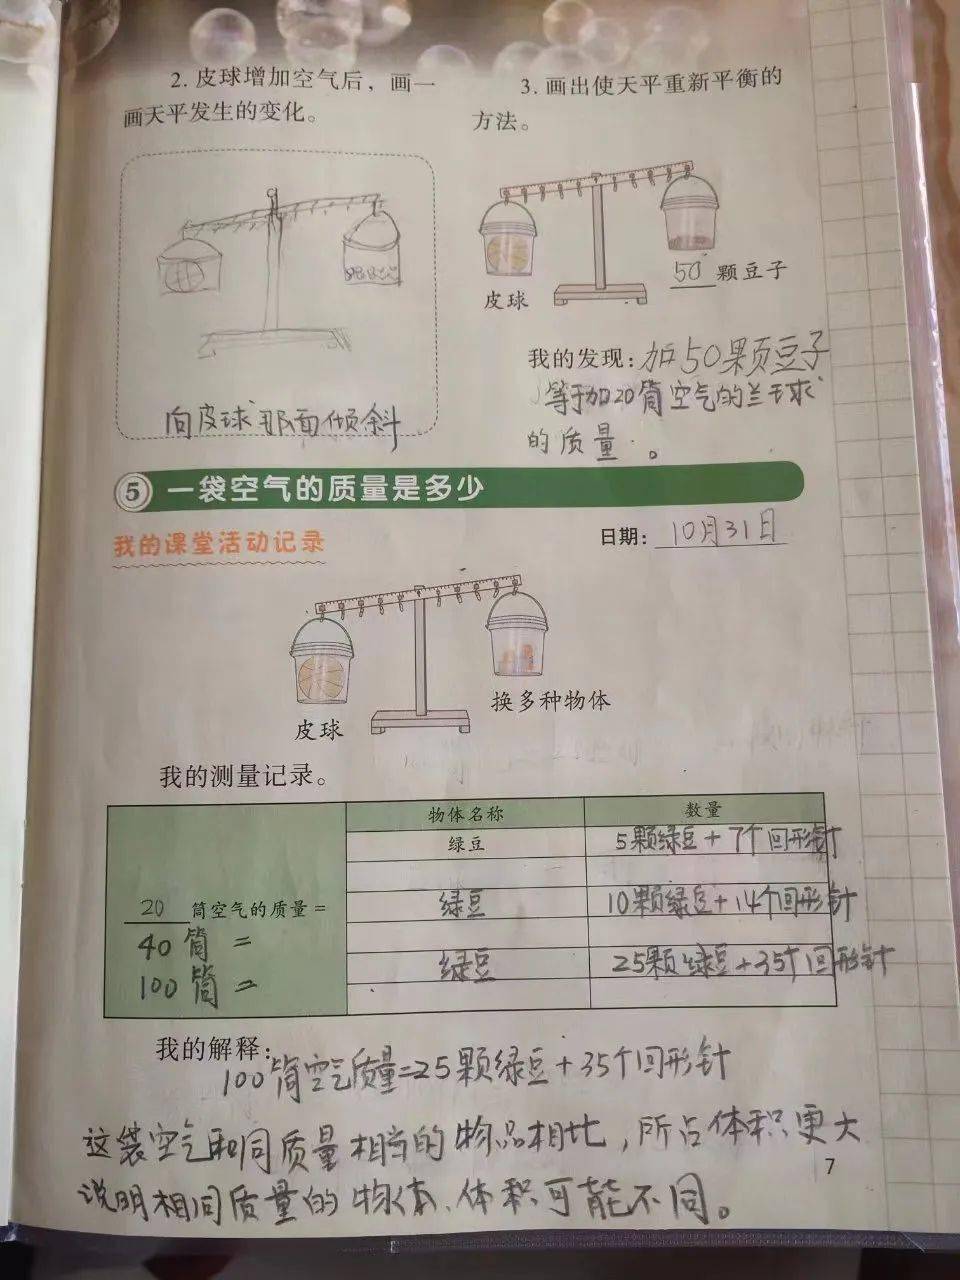 2. 皮球增加空气后，画一
画天平发生的变化。
向皮球那面倾斜
3. 画出使天平重新平衡的
方法。
皮球
50 颗豆子
我的发现：加50颗豆子
等于加20筒空气的兰球
的质量。
5 一袋空气的质量是多少
我的课堂活动记录
日期：10月31日
皮球
换多种物体
我的测量记录。
物体名称 数量
绿豆 5颗绿豆+7个回形针
20 筒空气的质量= 绿豆 10颗绿豆+14个回形针
40筒 =
绿豆 25颗绿豆+35个回形针
100筒 =
我的解释：
100筒空气质量=25颗绿豆+35个回形针
这袋空气和同质量相当的物品相比，所占体积更大
说明相同质量的物体、体积可能不同。
7